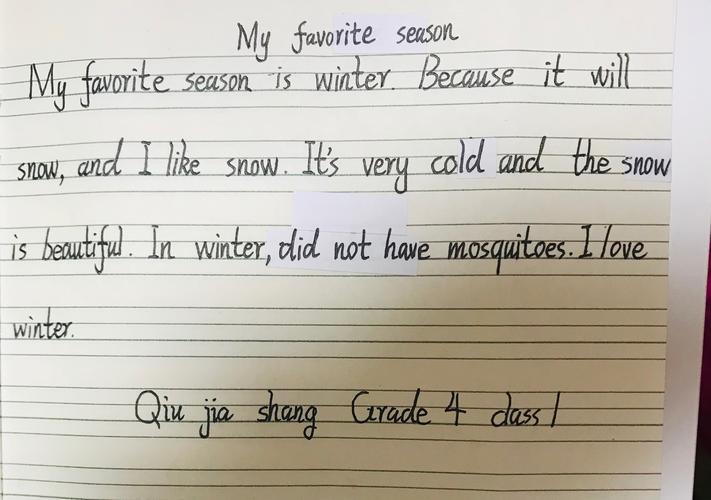 My favorite season
My favorite season is winter. Because it will
snow, and I like snow. It's very cold and the snow
is beautiful. In winter, did not have mosquitoes. I love
winter.
Qiu jia shang Grade 4 class 1